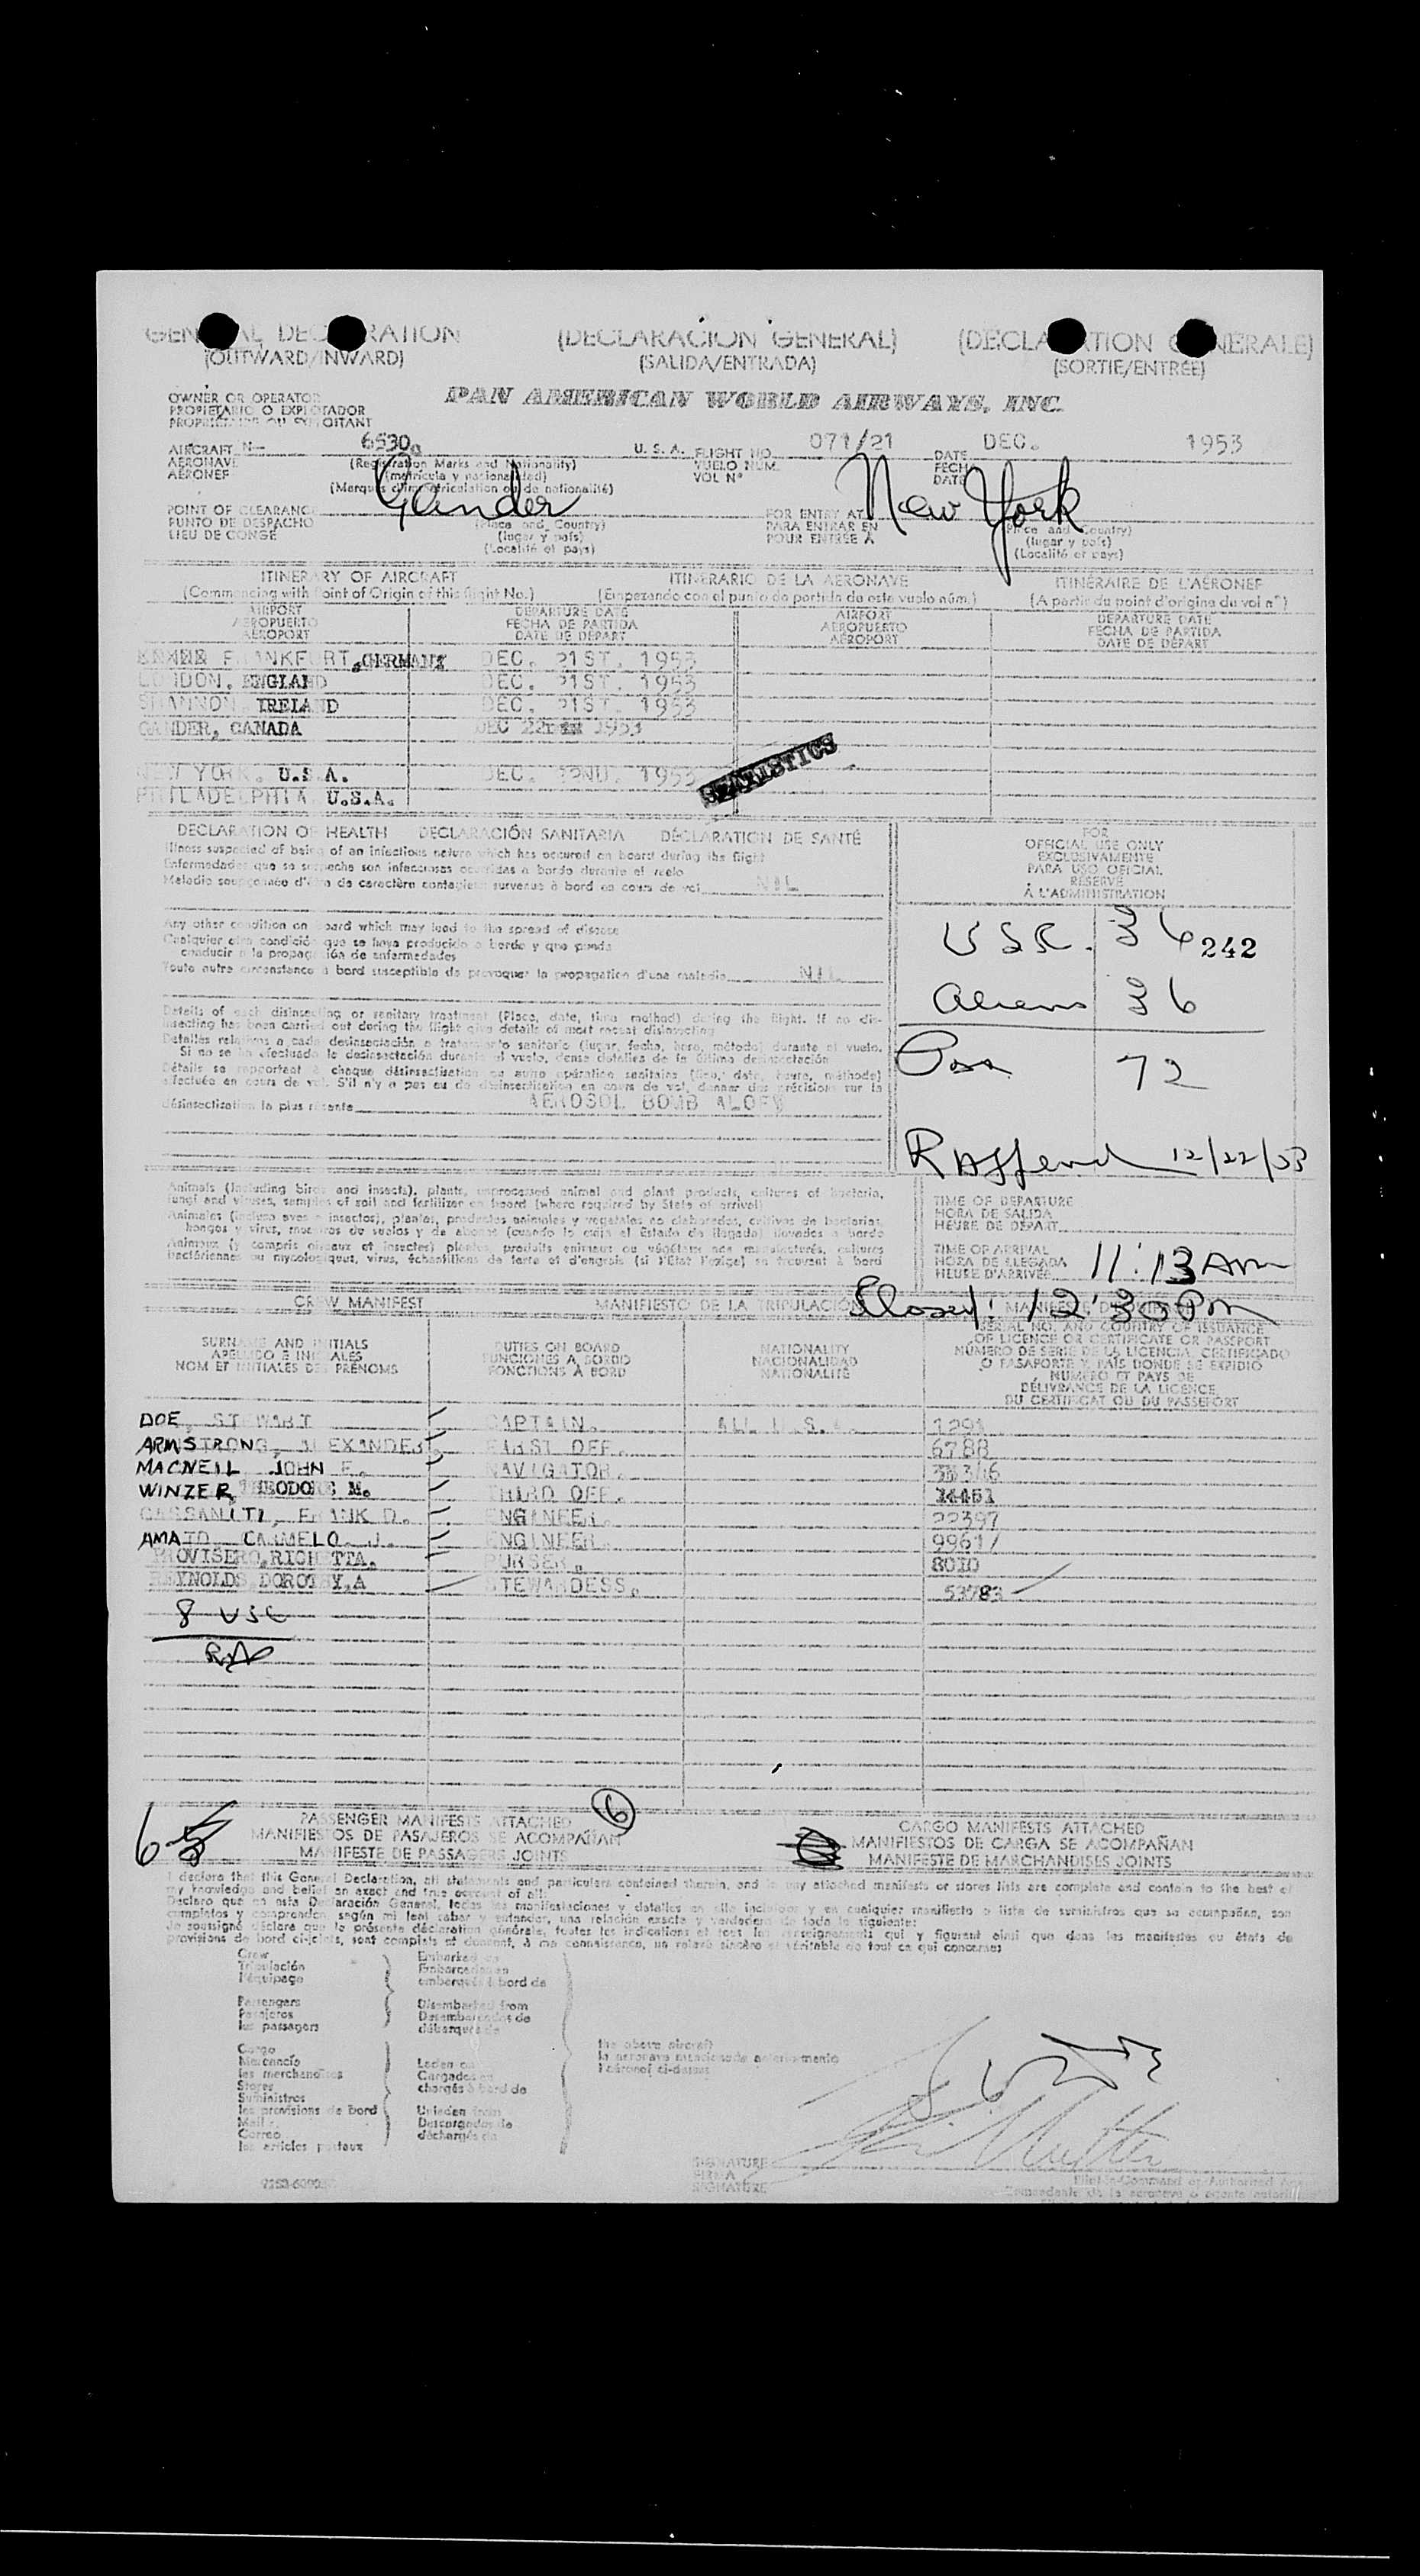 GENERAL DECLARATION (DECLARACION GENERAL) (DECLARATION GENERALE)
(OUTWARD/INWARD) (SALIDA/ENTRADA) (SORTIE/ENTRÉE)
OWNER OR OPERATOR
PROPIETARIO O EXPLOTADOR
PAN AMERICAN WORLD AIRWAYS, INC.
AIRCRAFT N— U. S. A. FLIGHT NO. 071/21 DATE DEC. 1953
AERONAVE (Registration Marks and Nationality) VUELO NUM. FECHA
AÉRONEF (matrícula y nacionalidad) VOL Nº DATE
(Marques d'immatriculation ou de nationalité)
POINT OF CLEARANCE Gander FOR ENTRY AT New York
PUNTO DE DESPACHO (Place and Country) PARA ENTRAR EN (Place and Country)
LIEU DE CONGÉ (lugar y país) POUR ENTRÉE À (lugar y país)
(Localité et pays) (Localité et pays)
ITINERARY OF AIRCRAFT ITINERARIO DE LA AERONAVE ITINÉRAIRE DE L'AÉRONEF
(Commencing with Point of Origin of this flight No.) (Empezando con el punto de partida de este vuelo núm.) (A partir du point d'origine du vol nº)
AIRPORT DEPARTURE DATE AIRPORT DEPARTURE DATE
AEROPUERTO FECHA DE PARTIDA AEROPUERTO FECHA DE PARTIDA
AÉROPORT DATE DE DÉPART AÉROPORT DATE DE DÉPART
FRANKFURT, GERMANY DEC. 21ST. 1953
LONDON, ENGLAND DEC. 21ST. 1953
SHANNON, IRELAND DEC. 21ST. 1953
GANDER, CANADA DEC 22 1953
STATISTICS
NEW YORK, U.S.A. DEC. 22ND. 1953
PHILADELPHIA U.S.A.
DECLARATION OF HEALTH DECLARACIÓN SANITARIA DÉCLARATION DE SANTÉ
Illness suspected of being of an infectious nature which has occured on board during the flight
Enfermedades que se sospeche son infecciosas ocurridas a bordo durante el vuelo
Maladie soupçonnée d'être de caractère contagieux survenue à bord en cours de vol NIL
FOR
OFFICIAL USE ONLY
EXCLUSIVAMENTE
PARA USO OFICIAL
RÉSERVÉ
À L'ADMINISTRATION
Any other condition on board which may lead to the spread of disease
Cualquier otra condición que se haya producido a bordo y que pueda
conducir a la propagación de enfermedades
Toute autre circonstance à bord susceptible de provoquer la propagation d'une maladie NIL
USC. 36 242
Aliens 36
Pass 72
Details of each disinsecting or sanitary treatment (Place, date, time method) during the flight. If no dis-
insecting has been carried out during the flight give details of most recent disinsecting
Detalles relativos a cada desinsectación o tratamiento sanitario (lugar, fecha, hora, método) durante el vuelo.
Si no se ha efectuado la desinsectación durante el vuelo, dense detalles de la última desinsectación
Détails se rapportant à chaque désinsectisation ou autre opération sanitaire (lieu, date, heure, méthode)
effectuée en cours de vol. S'il n'y a pas eu de désinsectisation en cours de vol, donner des précisions sur la
désinsectisation la plus récente AEROSOL BOMB ALOFT
12/22/53
Animals (including birds and insects), plants, unprocessed animal and plant products, cultures of bacteria,
fungi and viruses, samples of soil and fertilizer on board (where required by State of arrival)
Animales (incluso aves e insectos), plantas, productos animales y vegetales no elaborados, cultivos de bacterias,
hongos y virus, muestras de suelos y de abonos (cuando lo exija el Estado de llegada) llevados a bordo
Animaux (y compris oiseaux et insectes) plantes, produits animaux ou végétaux non manufacturés, cultures
bactériennes ou mycologiques, virus, échantillons de terre et d'engrais (si l'État l'exige) se trouvant à bord
TIME OF DEPARTURE
HORA DE SALIDA
HEURE DE DÉPART
TIME OF ARRIVAL
HORA DE LLEGADA 11:13 Am
HEURE D'ARRIVÉE
Closed: 12:30 Pm
CREW MANIFEST MANIFIESTO DE LA TRIPULACIÓN
SURNAME AND INITIALS
APELLIDO E INICIALES
NOM ET INITIALES DES PRÉNOMS
DUTIES ON BOARD
FUNCIONES A BORDO
FONCTIONS À BORD
NATIONALITY
NACIONALIDAD
NATIONALITÉ
SERIAL NO. AND COUNTRY OF ISSUANCE
OF LICENCE OR CERTIFICATE OR PASSPORT
NÚMERO DE SERIE DE LA LICENCIA, CERTIFICADO
O PASAPORTE Y PAÍS DONDE SE EXPIDIÓ
NUMÉRO ET PAYS DE
DÉLIVRANCE DE LA LICENCE
DU CERTIFICAT OU DU PASSEPORT
DOE, STEWART CAPTAIN. ALL U.S. 1291
ARMSTRONG, ALEXANDER FIRST OFF. 6788
MACNEIL JOHN F. NAVIGATOR.
WINZER, THEODORE M. THIRD OFF.
CASSANITI, FRANK D. ENGINEER. 22397
AMATO CARMELO J. ENGINEER. 99617
PROVISERO, RICHETTA. PURSER. 8010
REYNOLDS, DOROTHY. A STEWARDESS. 53783
8 USC
PASSENGER MANIFESTS ATTACHED 6 CARGO MANIFESTS ATTACHED
6 MANIFIESTOS DE PASAJEROS SE ACOMPAÑAN MANIFIESTOS DE CARGA SE ACOMPAÑAN
MANIFESTE DE PASSAGERS JOINTS MANIFESTE DE MARCHANDISES JOINTS
I declare that this General Declaration, all statements and particulars contained therein, and in any attached manifests or stores lists are complete and contain to the best of
my knowledge and belief an exact and true account of all:
Declaro que en esta Declaración General, todas las manifestaciones y detalles en ella incluidos y en cualquier manifiesto o lista de suministros que se acompañan, son
completos y comprenden según mi leal saber y entender, una relación exacta y verdadera de todo lo siguiente:
Je soussigné déclare que la présente déclaration générale, toutes les indications et tous les renseignements qui y figurent ainsi que dans les manifestes ou états de
provisions de bord ci-joints, sont complets et donnent, à ma connaissance, un relevé sincère et véritable de tout ce qui concerne:
Crew
Tripulación
l'équipage
Embarked on
Embarcados en
embarqués à bord de
Passengers
Pasajeros
les passagers
Disembarked from
Desembarcados de
débarqués de
Cargo
Mercancía
les merchandises
Stores
Suministros
les provisions de bord
Mail
Correo
les articles postaux
Laden on
Cargados en
chargés à bord de
Unladen from
Descargados de
déchargés de
the above aircraft
la aeronave mencionada anteriormente
l'aéronef ci-dessus
SIGNATURE
FIRMA
SIGNATURE
Pilot-in-Command or Authorized
Comandante de la aeronave o agente